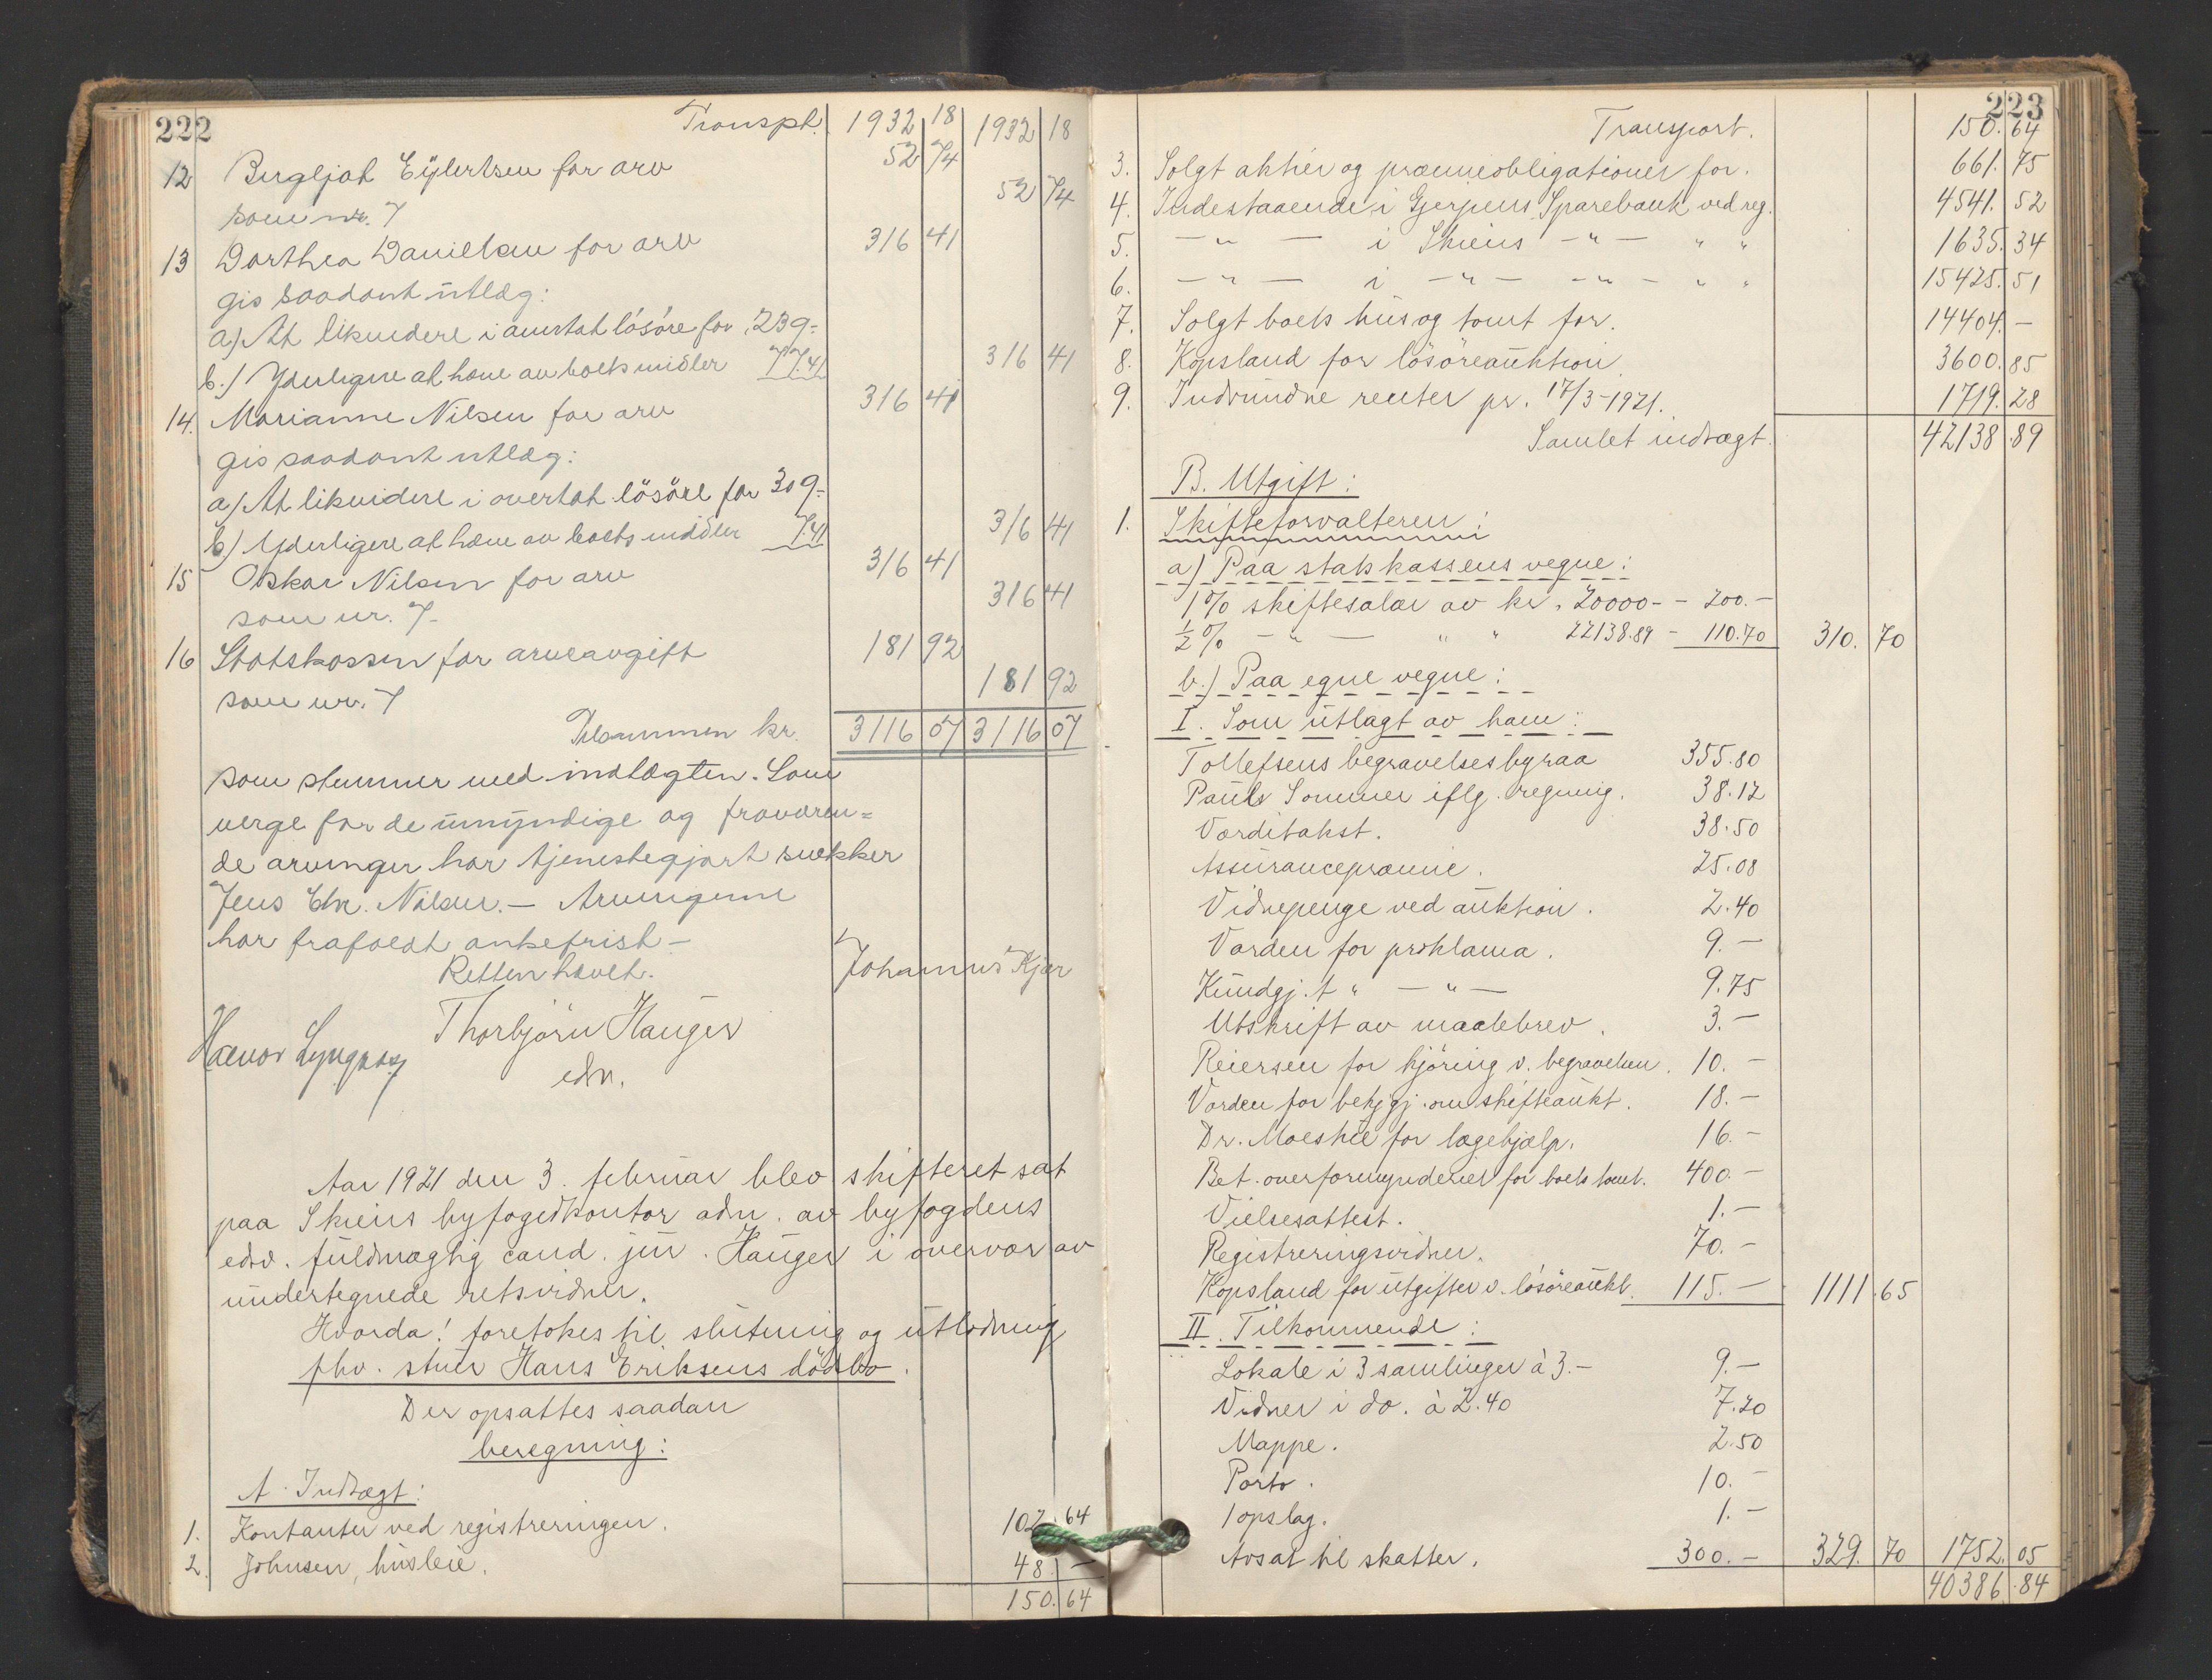 222
Transpt. 1932 18 1932 18
12 Bergljot Eylertsen for arv 52 74
som nr. 7 52 74
13 Dorthea Danielsen for arv 316 41
gis saadant utlæg:
a) At likvidere i overtat løsøre for 239.-
b.) Yderligere at hæve av boets midler 77.41 316 41
14. Marianne Nilsen for arv 316 41
gis saadant utlæg:
a) At likvidere i overtat lösöre for 309.-
b) Yderligere at hæve av boets midler 7.41 316 41
15 Oskar Nilsen for arv 316 41
som nr. 7- 316 41
16 Statskassen for arveavgift 181 92
som nr. 7 181 92
Tilsammen kr. 3116 07 3116 07
som stemmer med indtægten. Som
verge for de umyndige og fraværen=
de arvinger har tjenestegjort snekker
Jens Chr. Nilsen. — Arvingerne
har frafaldt ankefrist —
Retten hævet. Johannes Kjær
Thorbjörn Hauger
edv.
Aar 1921 den 3. februar blev skifteret sat
paa Skiens byfogedkontor adm. av byfogdens
edsv. fuldmægtig cand. jur. Hauger i overvær av
undertegnede retsvidner.
Hvorda! foretokes til slutning og utlodning
fhv. stuer Hans Eriksens dödsbo.
Der opsattes saadan
beregning:
A. Indtægt:
1. Kontanter ved registreringen. 102.64
2. Johnsen, husleie. 48. —
150.64
223
Transport. 150.64
3. Solgt aktier og præmieobligationer for. 661.75
4. Indestaaende i Gjerpens Sparebank ved reg. 4541.52
5. — " — i Skiens — " — " " 1635.34
6. — " — i — " — — " — " " 15425.51
7. Solgt boets hus og tomt for. 14404. —
8. Kopsland for lösöreauktion 3600.85
9. Indvundne renter pr. 17/3-1921. 1719.28
Samlet indtægt. 42138.89
B. Utgift:
1. Skifteforvalteren:
a) Paa statskassens vegne:
1% skiftesalær av kr. 20000.- - 200.—
½% — " — " " 22138.89 - 110.70 310.70
b.) Paa egne vegne:
I. Som utlagt av ham:
Tollefsens begravelsesbyraa 355.80
Pauls Sommer iflg. regning. 38.12
Værditakst. 38.50
Assurancepræmie. 25.08
Vidnepenge ved auktion. 2.40
Varden for proklama. 9.—
Kundgj. t " — " — 9.75
Utskrift av maalebrev. 3.—
Reiersen for kjöring v. begravelsen. 10.—
Varden for bekjgj. om skifteaukt. 18.—
Dr. Moestue for lægehjælp. 16.—
Bet. overformynderiet for boets tomt. 400.—
Vielsesattest. 1.—
Registreringsvidner. 70.—
Kopsland for utgifter v. lösöreaukt. 115.— 1111.65
II. Tilkommende:
Lokale i 3 samlinger à 3.— 9.—
Vidner i do. à 2.40 7.20
Mappe. 2.50
Porto. 10.—
1 opslag. 1.—
Avsat til skatter. 300.— 329.70 1752.05
40386.84